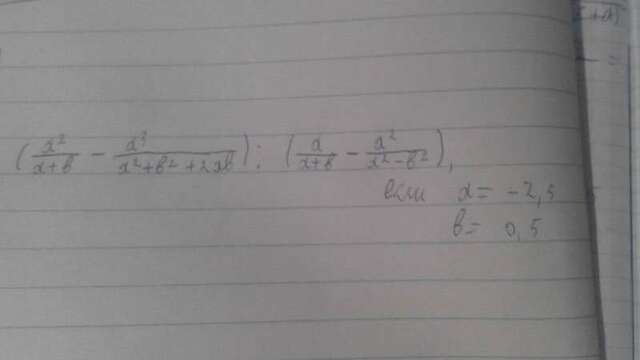 (x²/(x+в) − x³/(x²+в²+2xв)) : (x/(x+в) − x²/(x²−в²)),
если x = −2,5
в = 0,5